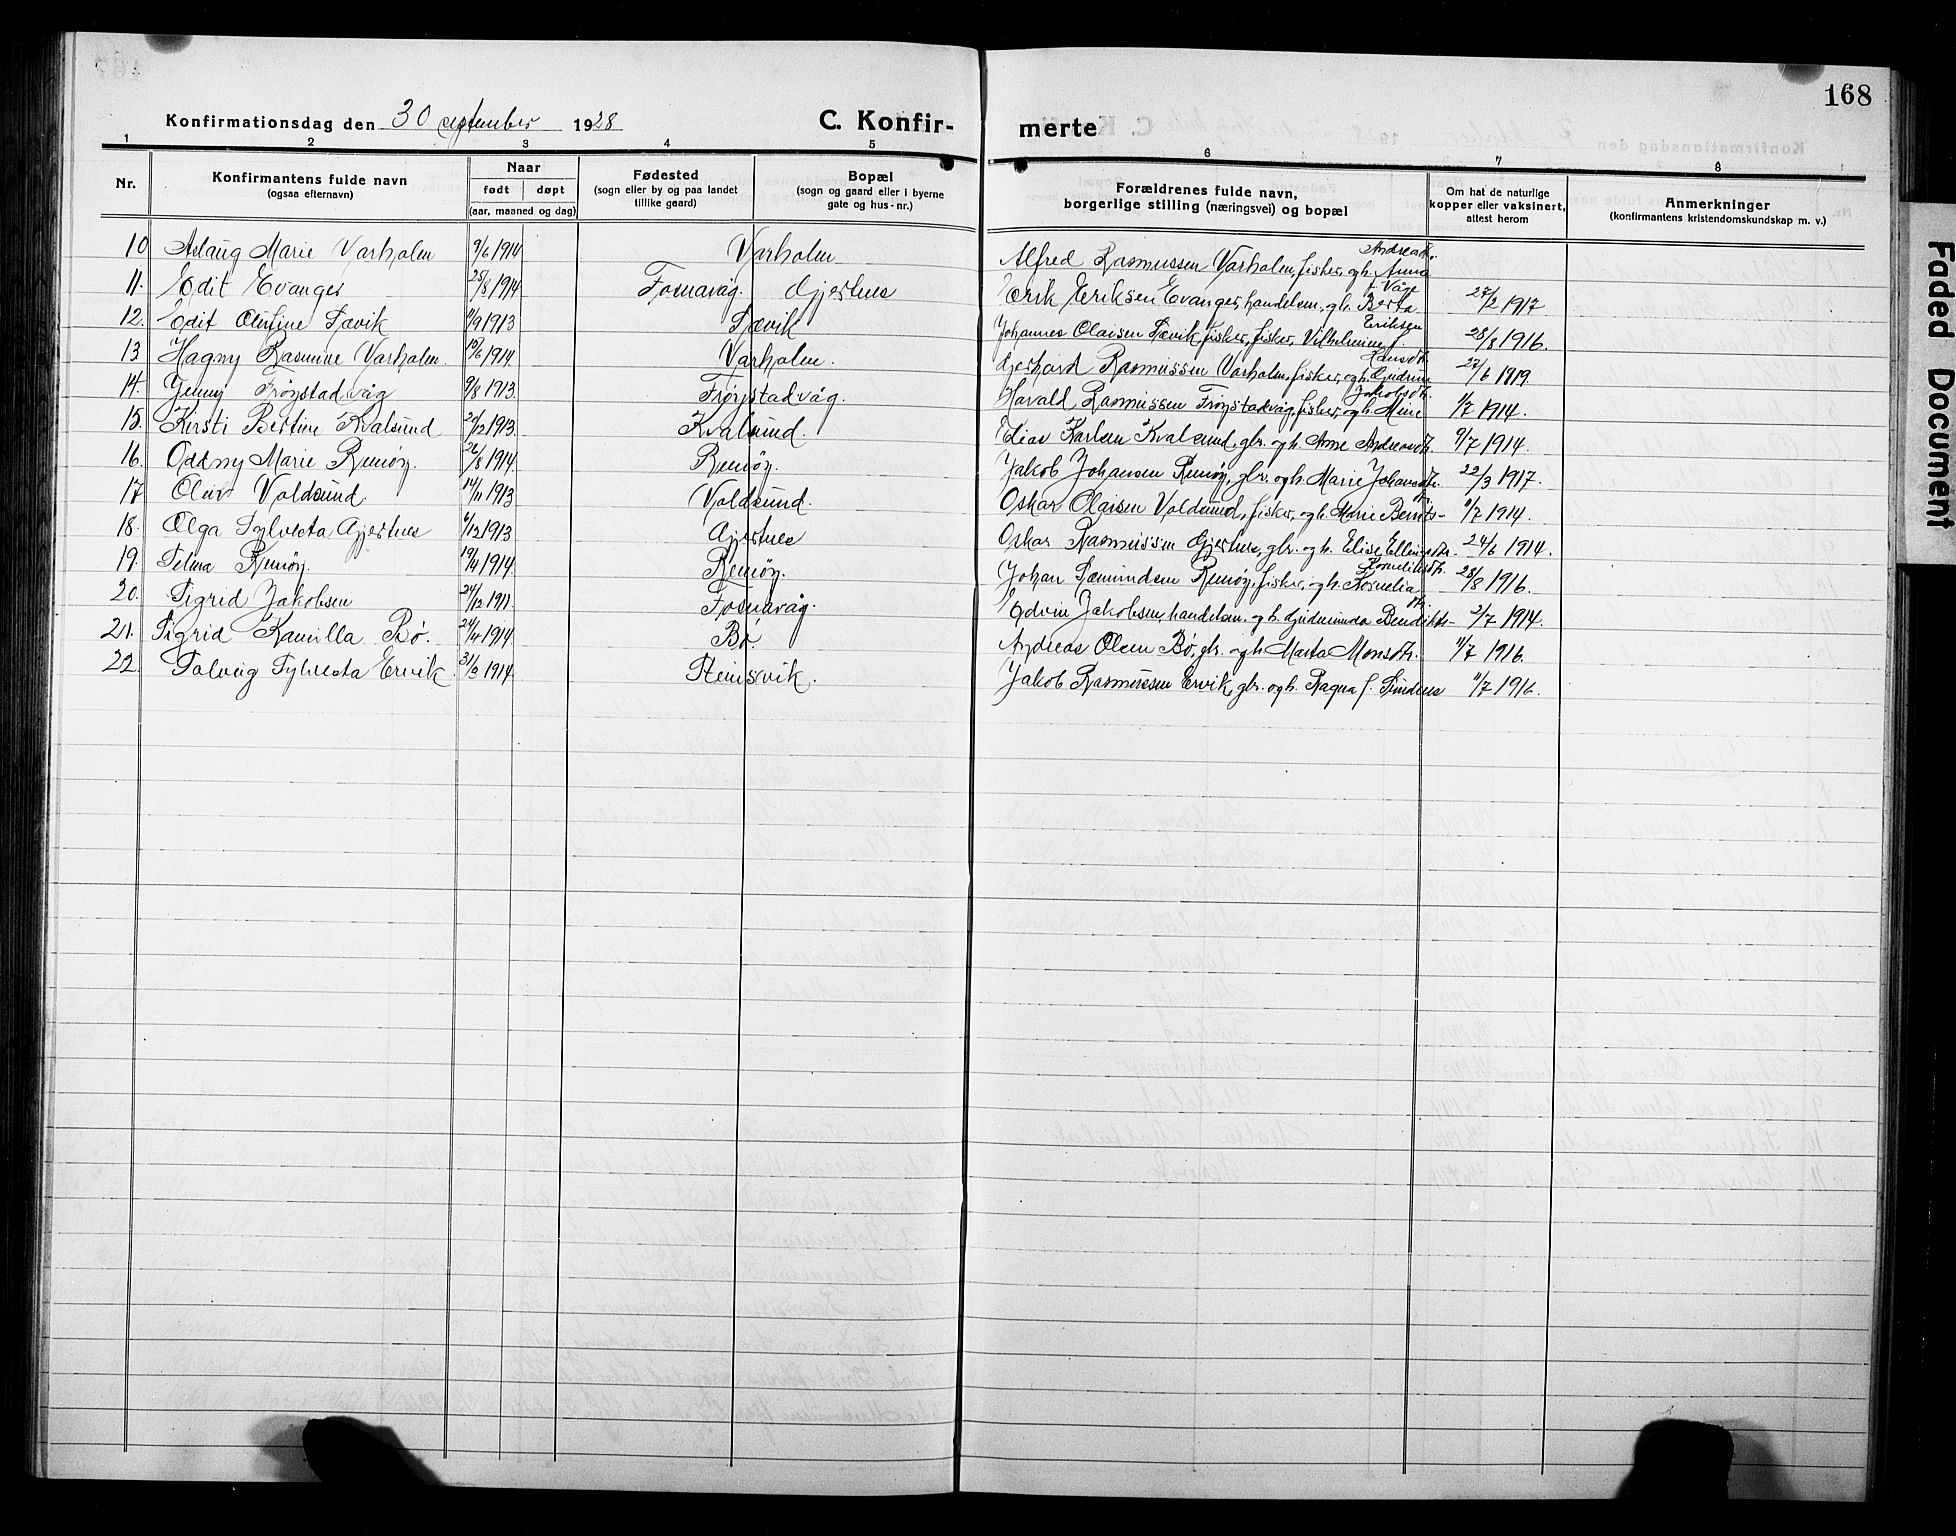 168
Konfirmationsdag den 30 september 1928
C. Konfir-merte
1 2 3 4 5 6 7 8
Nr. Konfirmantens fulde navn (ogsaa efternavn) Naar født døpt (aar, maaned og dag) Fødested (sogn eller by og paa landet tillike gaard) Bopæl (sogn og gaard eller i byerne gate og hus-nr.) Forældrenes fulde navn, borgerlige stilling (næringsvei) og bopæl Om hat de naturlige kopper eller vaksinert, attest herom Anmerkninger (konfirmantens kristendomskundskap m. v.)
10 Aslaug Marie Varholm 9/6 1914 Varholm Alfred Rasmussen Varholm, fisker, og h. Anna Andreasdt.
11. Edit Evanger 25/8 1914 Fosnavåg. Gjertnes Erik Eriksen Evanger, handelsm. og h. Berta f. Våge 27/2 1917
12. Edit Olufine Sævik 11/9 1913 Sævik Johannes Olaisen Sævik, fisker, fisker, Vilhelmine f. Eriksen 28/8 1916.
13 Hagny Rasmine Varholm. 15/6 1914. Varholm. Gerhard Rasmussen Varholm, fisker, og h. Gudrun Hansdt. 27/6 1919.
14. Jenny Frøystadvåg 9/8 1913. Frøystadvåg. Harald Rasmussen Frøystadvåg, fisker, og h. Mine Jakobsdt. 1/7 1914.
15. Kersti Bertine Kvalsund 20/12 1913. Kvalsund. Elias Karlsen Kvalsund, gbr. og h. Anne Andreasdt. 9/7 1914.
16. Oddny Marie Remøy. 26/8 1914. Remøy. Jakob Johansen Remøy, gbr. og h. Marie Johansdt. 22/3 1917.
17 Oluv Voldsund. 14/11 1913 Voldsund. Oskar Olaisen Voldsund, fisker, og h. Marie Bernts-dt. 8/7 1914.
18. Olga Sylvesta Gjertnes 6/12 1913 Gjertnes Oskar Rasmussen Gjertnes, gbr. og h. Elise Ellingsdt. 24/6 1914.
19. Selma Remøy. 19/4 1914. Remøy. Johan Sæmundsen Remøy, fisker, og h. Kornelia Korneliusdt. 28/8 1916.
20. Sigrid Jakobsen 24/12 1911. Fosnavåg. Edvin Jakobsen, handelsm. og h. Gudmunda Bendikts-dt. 2/7 1914.
21. Sigrid Kamilla Bø. 24/4 1914. Bø. Andreas Olsen Bø, gbr. og h. Marta Monsdt. 11/7 1916.
22 Solveig Sylvesta Ervik. 31/3 1914. Steinsvik. Jakob Rasmussen Ervik, gbr. og h. Ragna f. Sindnes 11/7 1916.
Faded Document